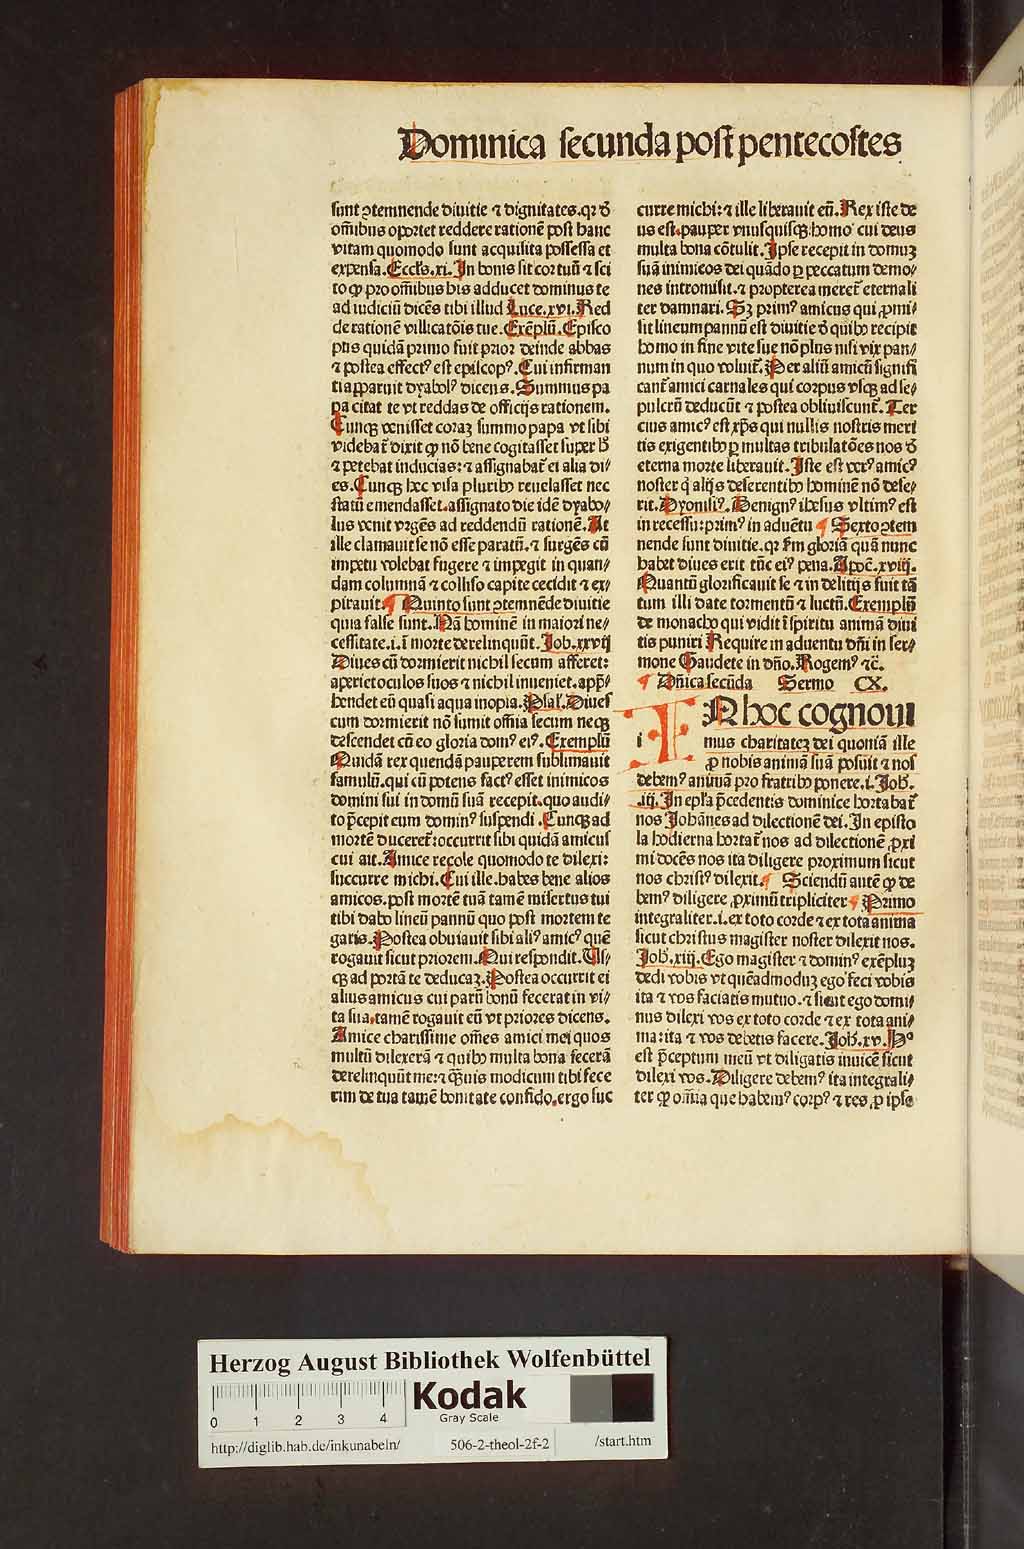 Dominica secunda post pentecostes
sunt ꝯtemnende diuitie ⁊ dignitates. qꝛ ð
om̄ibus oportet reddere rationē post hanc
vitam quomodo sunt acquisita possessa et
expensa. Eccl's. xi. In bonis sit cor tuū ⁊ sci
to ꝙ pro om̄ibus his adducet dominus te
ad iudiciū dicēs tibi illud Luce. xvi. Red
de rationē villicatōis tue. Exēplū. Episco
pus quidā primo fuit prior deinde abbas
⁊ postea effectꝰ est episcopꝰ. Cui infirman
ti apparuit dyabolꝰ dicens. Summus pa
pa citat te vt reddas de officijs rationem.
Cunqꝫ venisset coraꝫ summo papa vt sibi
videbat̄ dixit ꝙ nō bene cogitasset super h̄
⁊ petebat inducias: ⁊ assignabat̄ ei alia di⸗
es. Cunqꝫ hec visa pluribꝰ reuelasset nec
statū emendasset. assignato die idē dyabo⸗
lus venit vrgēs ad reddendū rationē. At
ille clamauit se nō esse paratū. ⁊ surgēs cū
impetu volebat fugere ⁊ impegit in quan⸗
dam columnā ⁊ colliso capite cecidit ⁊ ex⸗
pirauit. ¶ Quinto sunt ꝯtemnēde diuitie
quia false sunt. Nā hominē in maiori ne⸗
cessitate. i. ī morte derelinquūt. Job. xxvij
Diues cū dormierit nichil secum afferet:
aperiet oculos suos ⁊ nichil inueniet. app̄⸗
hendet eū quasi aqua inopia. Psal'. Diues
cum dormierit nō sumit om̄ia secum neqꝫ
descendet cū eo gloria domꝰ eiꝰ. Exemplū
Quidā rex quendā pauperem sublimauit
famulū. qui cū potens factꝰ esset inimicos
domini sui in domū suā recepit. quo audi⸗
to p̄cepit eum dominꝰ suspendi. Cunqꝫ ad
mortē duceret̄: occurrit sibi quidā amicus
cui ait. Amice recole quomodo te dilexi:
succurre michi. Cui ille. habes bene alios
amicos. post mortē tuā tamē misertus tui
tibi dabo lineū pannū quo post mortem te
garis. Postea obuiauit sibi aliꝰ amicꝰ quē
rogauit sicut priorem. Qui respondit. Us⸗
qꝫ ad portā te deducaꝫ. Postea occurrit ei
alius amicus cui parū bonū fecerat in vi⸗
ta sua. tamē rogauit eū vt priores dicens.
Amice charissime om̄es amici mei quos
multū dilexerā ⁊ quibꝰ multa bona fecerā
derelinquūt me: ⁊ qꝫuis modicum tibi fece
rim de tua tamē bonitate confido. ergo suc
curre michi: ⁊ ille liberauit eū. Rex iste de
us est. pauper vnusquisqꝫ homo cui deus
multa bona cōtulit. Ipse recepit in domuꝫ
suā inimicos dei quādo ꝑ peccatum demo⸗
nes intromisit. ⁊ propterea meret̄ eternali
ter damnari. Sꝫ primꝰ amicus qui ꝓmi⸗
sit lineum pannū est diuitie ð quibꝰ recipit
homo in fine vite sue nō plus nisi vix pan⸗
num in quo voluit̄. Per aliū amicū signifi
cant̄ amici carnales qui corpus vsqꝫ ad se⸗
pulcrū deducūt ⁊ postea obliuiscunt̄. Ter
cius amicꝰ est xp̄s qui nullis nostris meri
tis exigentibꝰ ꝑ multas tribulatōes nos ð
eterna morte liberauit. Iste est verꝰ amicꝰ
noster q̇ alijs deserentibꝰ hominē nō dese⸗
rit. Dyonisiꝰ. Benignꝰ ihesus vltimꝰ est
in recessu: primꝰ in aduētu ¶ Sexto ꝯtem
nende sunt diuitie. qꝛ scd̄m gloriā quā nunc
habet diues erit tūc eiꝰ pena. Apoc̄. xviij.
Quantū glorificauit se ⁊ in delitijs fuit tā
tum illi date tormentū ⁊ luctū. Exemplū
de monacho qui vidit ī spiritu animā diui
tis puniri Require in aduentu dn̄i in ser⸗
mone Gaudete in dn̄o. Rogemꝰ ⁊c̄.
¶ Dn̄ica secūda Sermo CX.
IN hoc cognoui
i mus charitateꝫ dei quoniā ille
ꝓ nobis animā suā posuit ⁊ nos
debemꝰ animā pro fratribꝰ ponere. i. Joh̄.
.iij. In epl'a p̄cedentis dominice hortabat̄
nos Johānes ad dilectionē dei. In episto
la hodierna hortat̄ nos ad dilectionē ꝓxi
mi docēs nos ita diligere proximum sicut
nos christꝰ dilexit. ¶ Sciendū autē ꝙ de
bemꝰ diligere ꝓximū tripliciter ¶ Primo
integraliter. i. ex toto corde ⁊ ex tota anima
sicut christus magister noster dilexit nos.
Joh̄. xiij. Ego magister ⁊ dominꝰ exēpluꝫ
dedi vobis vt quēadmoduꝫ ego feci vobis
ita ⁊ vos faciatis mutuo. ⁊ sicut ego domi⸗
nus dilexi vos ex toto corde ⁊ ex tota ani⸗
ma: ita ⁊ vos debetis facere. Joh̄. xv. Hᵒ
est p̄ceptum meū vt diligatis inuicē sicut
dilexi vos. Diligere debemꝰ ita integrali⸗
ter ꝙ om̄ia que habemꝰ corpꝰ ⁊ res, ꝓ ipso
Herzog August Bibliothek Wolfenbüttel
0 1 2 3 4
Kodak
Gray Scale
http://diglib.hab.de/inkunabeln/ 506-2-theol-2f-2 /start.htm